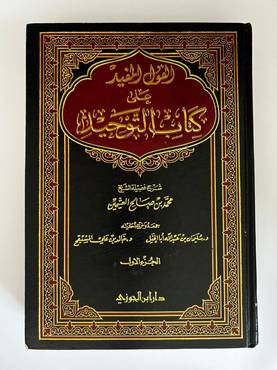 القول المفيد
على
كتاب التوحيد
شرح فضيلة الشيخ
محمد بن صالح العثيمين
جمعه وخرج أحاديثه
د. سليمان بن عبد الله أبا الخيل د. خالد بن علي المشيقح
الجزء الأول
دار ابن الجوزي